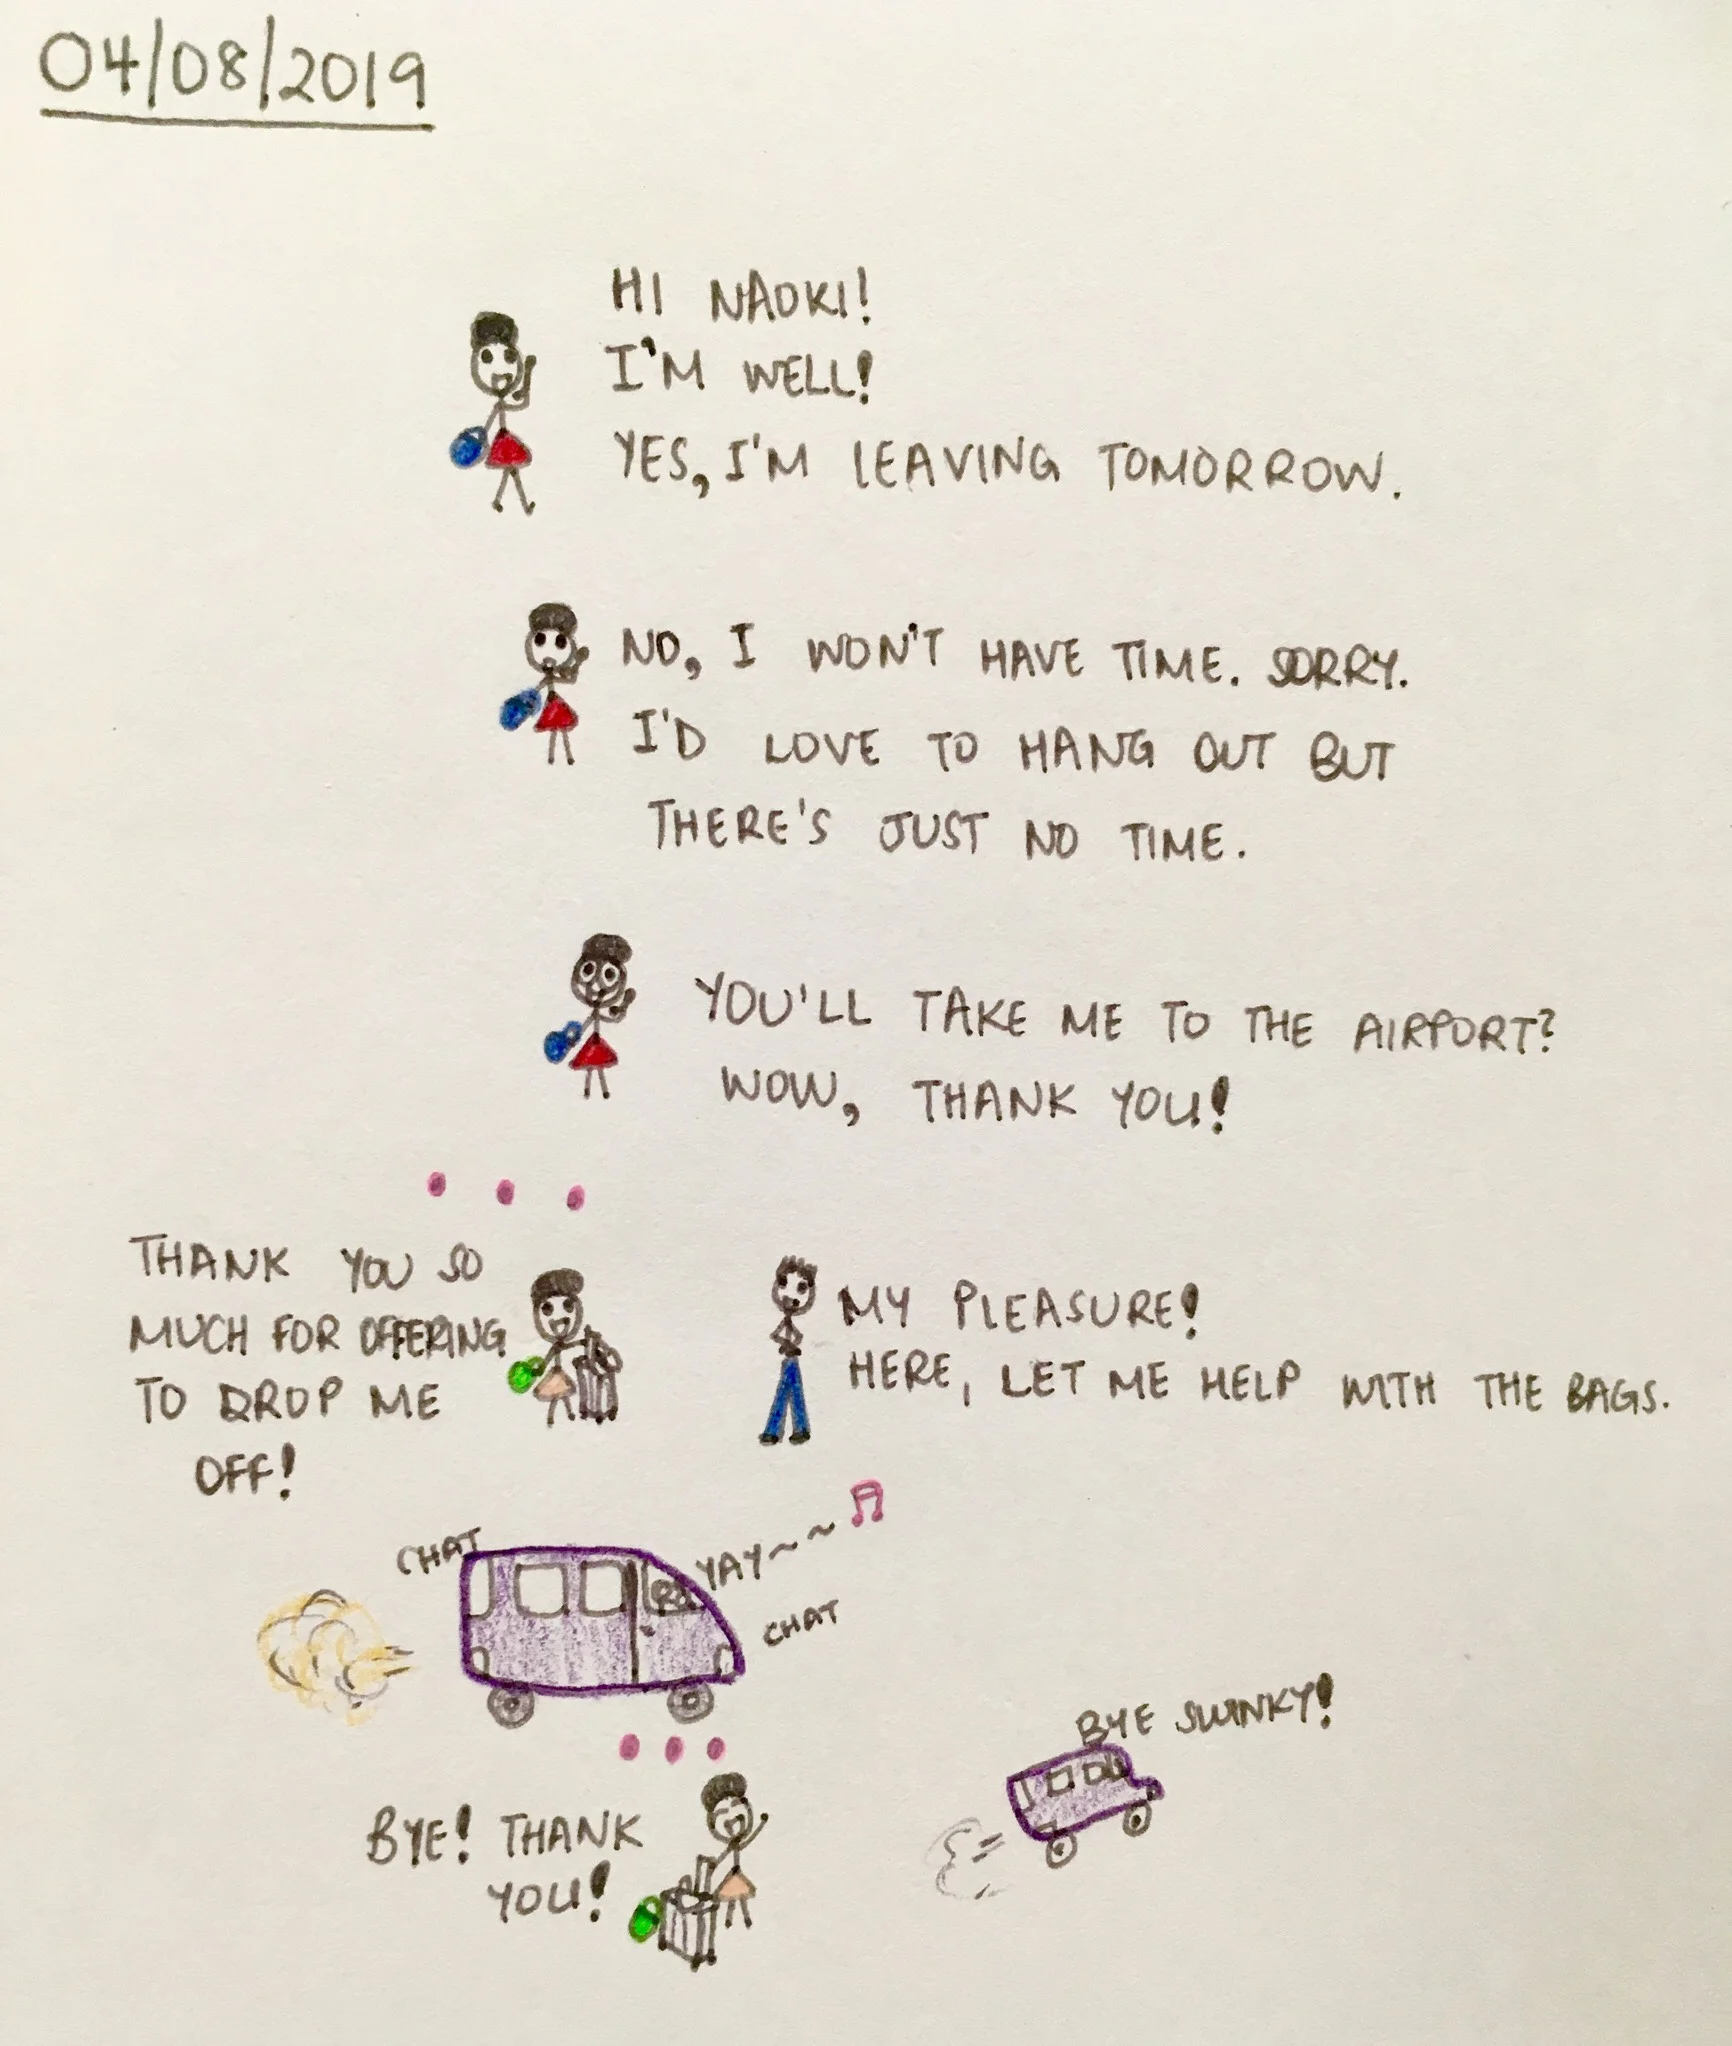 04/08/2019
HI NAOKI!
I'M WELL!
YES, I'M LEAVING TOMORROW.
NO, I WON'T HAVE TIME. SORRY.
I'D LOVE TO HANG OUT BUT
THERE'S JUST NO TIME.
YOU'LL TAKE ME TO THE AIRPORT?
WOW, THANK YOU!
THANK YOU SO
MUCH FOR OFFERING
TO DROP ME
OFF!
MY PLEASURE!
HERE, LET ME HELP WITH THE BAGS.
CHAT
YAY~~
CHAT
BYE SWINKY!
BYE! THANK
YOU!